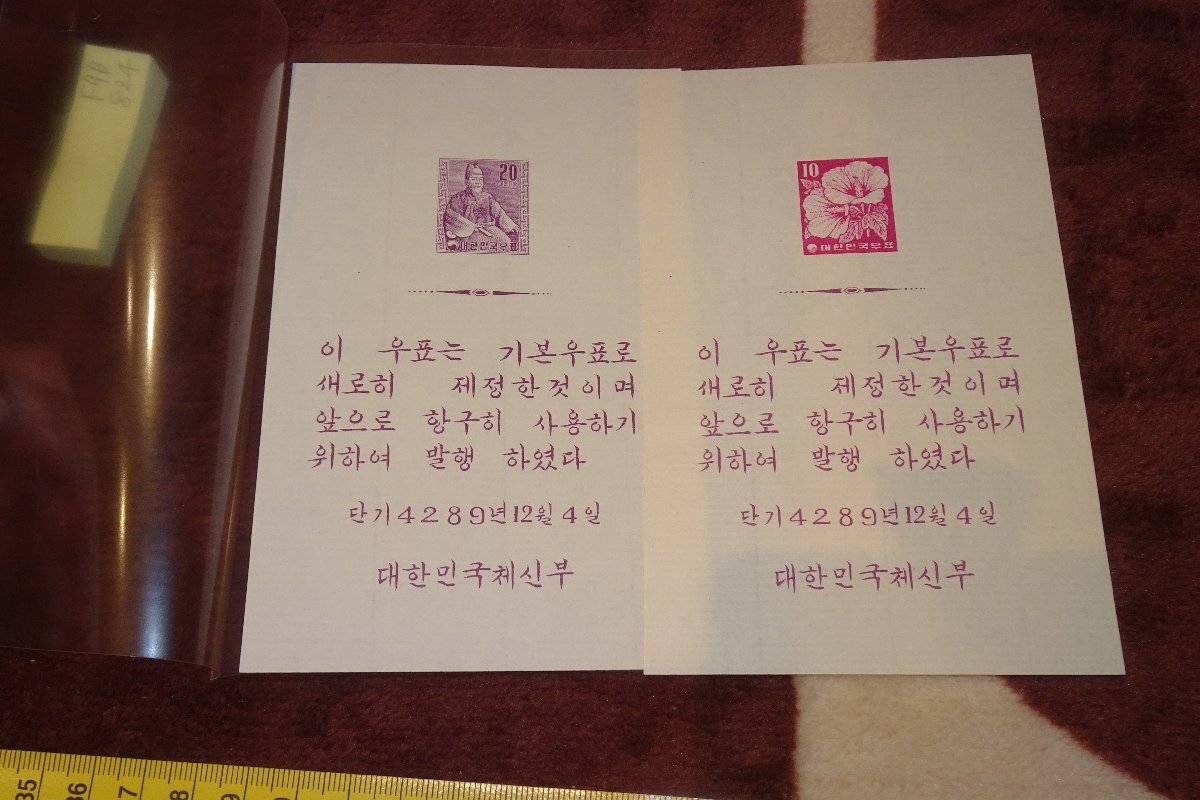 F9B
824
20
대한민국우표
이 우표는 기본우표로
새로히 제정한것이며
앞으로 항구히 사용하기
위하여 발행 하였다
단기4289년12월4일
대한민국체신부
10
대한민국우표
이 우표는 기본우표로
새로히 제정한것이며
앞으로 항구히 사용하기
위하여 발행 하였다
단기4289년12월4일
대한민국체신부